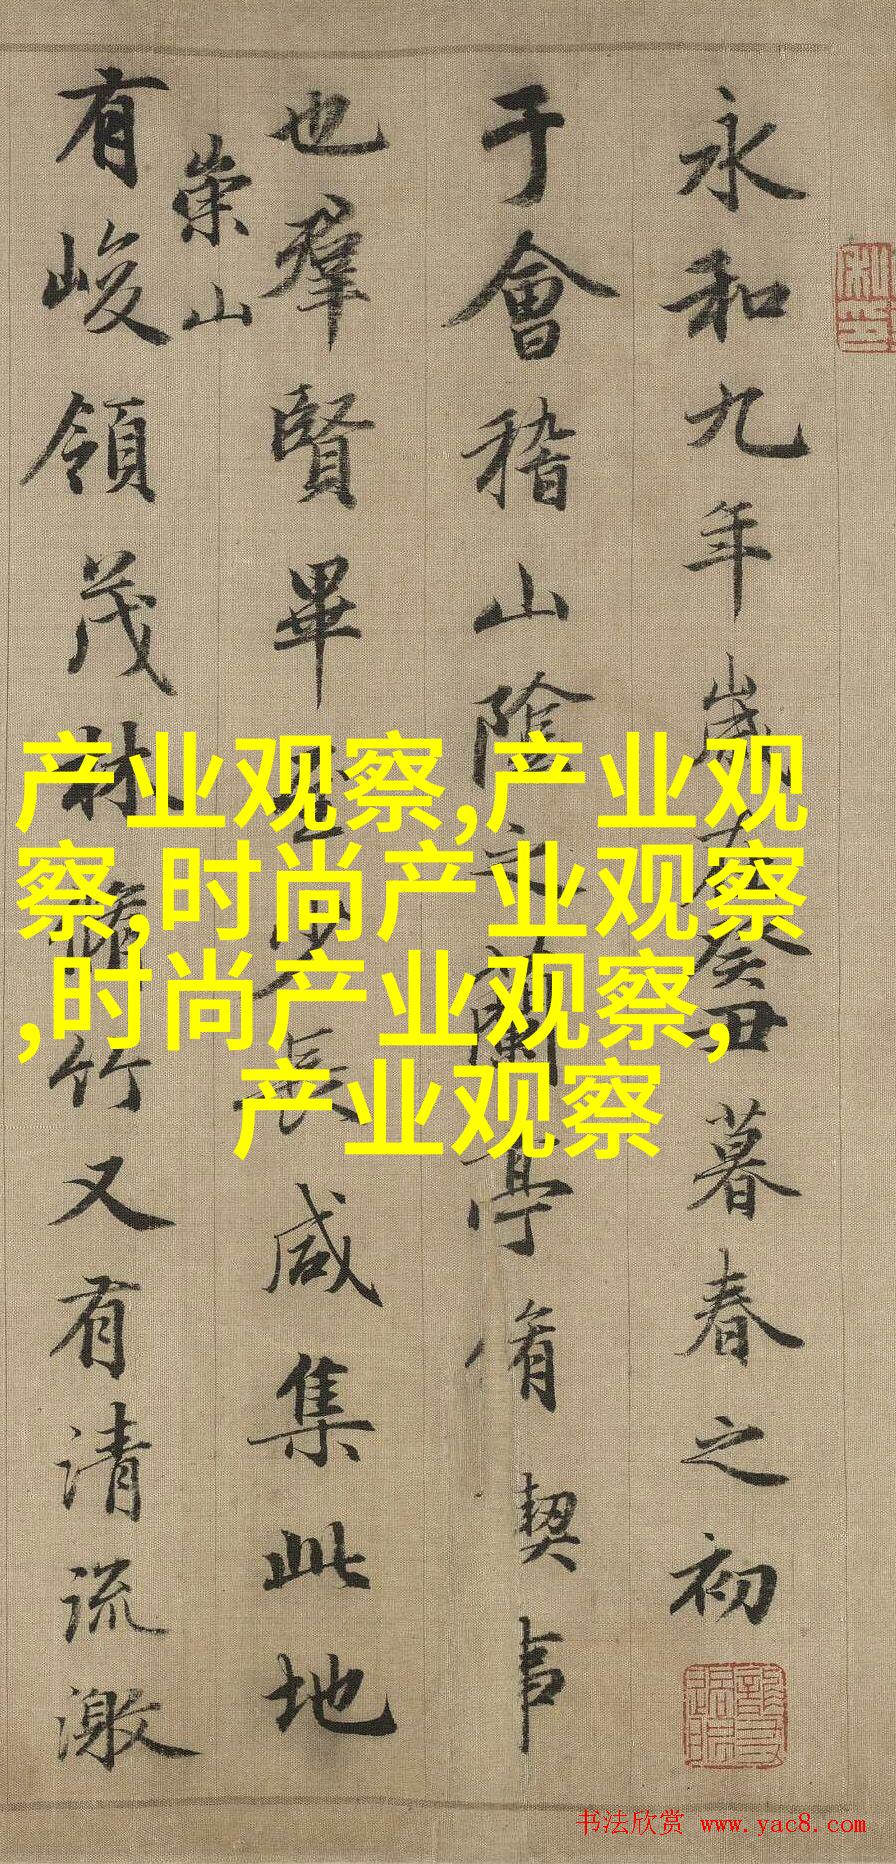 永和九年歲在癸丑暮春之初
于會稽山陰之蘭亭脩禊事
也羣賢畢至少長咸集此地
有崇山峻領茂林脩竹又有清流激
产业观察,产业观
察,时尚产业观察
,时尚产业观察,
产业观察
书法欣赏 www.yac8.com